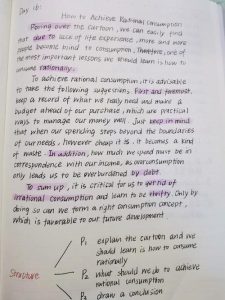 Day 16:
How to Achieve Rational Consumption
Poring over the cartoon, we can easily find
that due to lack of life experience, more and more
people become blind to consumption. Therefore, one of
the most important lessons we should learn is how to
consume rationally.
To achieve rational consumption, it is advisable
to take the following suggestions. First and foremost,
keep a record of what we really need and make a
budget ahead of our purchase, which are practical
ways to manage our money well. Just keep in mind
that when our spending steps beyond the boundaries
of our needs, however cheap it is, it becomes a kind
of waste. In addition, how much we spend must be in
correspondence with our income, as overconsumption
only leads us to be overburdened by debt.
To sum up, it is critical for us to get rid of
irrational consumption and learn to be thrifty. Only by
doing so can we form a right consumption concept,
which is favorable to our future development.
P1 explain the cartoon and we
should learn is how to consume
rationally
Structure P2 what should we do to achieve
rational consumption
P3 draw a conclusion